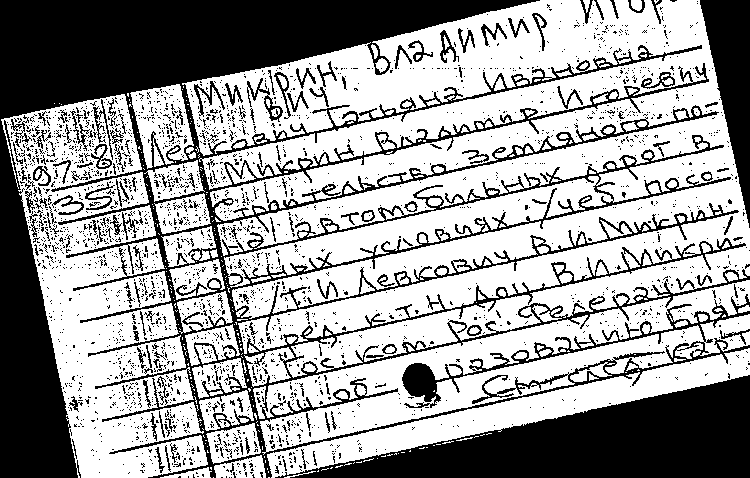 Микрин, Владимир Игоре-
вич
97-8 Левкович, Татьяна Ивановна,
35 Микрин, Владимир Игоревич
Строительство земляного по-
лотна автомобильных дорог в
сложных условиях: Учеб. посо-
бие / Т.И. Левкович, В.И. Микрин.
Под ред. к.т.н., доц. В.И. Микри-
на / Гос. ком. Рос. Федерации по
высш. об- разованию, Брян
См. след. карт